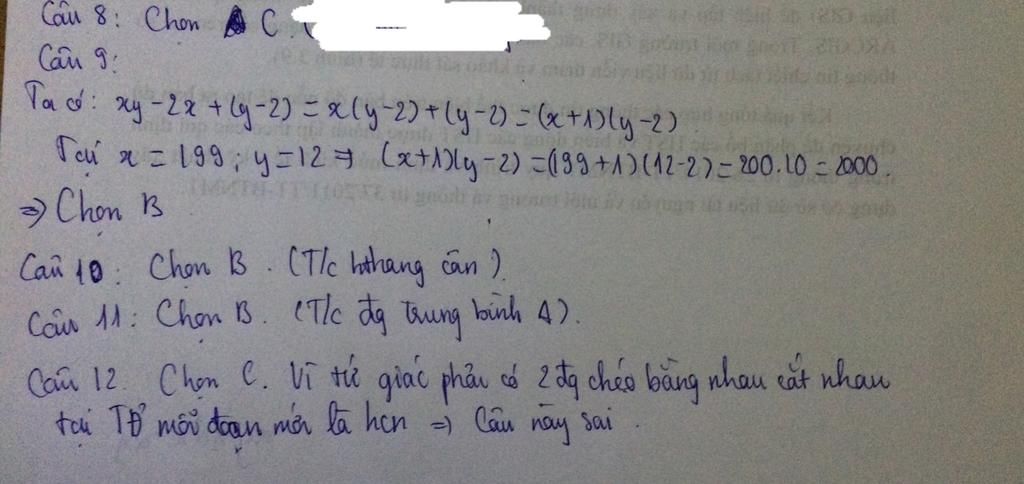 Câu 8: Chọn C (
Câu 9:
Ta có: xy - 2x + (y - 2) = x(y - 2) + (y - 2) = (x + 1)(y - 2).
Tại x = 199; y = 12 ⇒ (x + 1)(y - 2) = (199 + 1)(12 - 2) = 200.10 = 2000.
⇒ Chọn B
Câu 10: Chọn B. (T/c hthang cân).
Câu 11: Chọn B. (T/c đg trung bình Δ).
Câu 12. Chọn C. Vì tứ giác phải có 2 đg chéo bằng nhau cắt nhau
tại TĐ mỗi đoạn mới là hcn ⇒ Câu này sai.